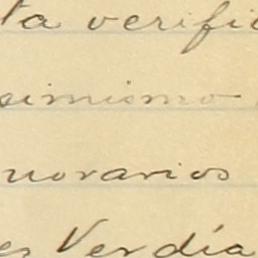 ta verifi
simismo
norarios
es Verdía